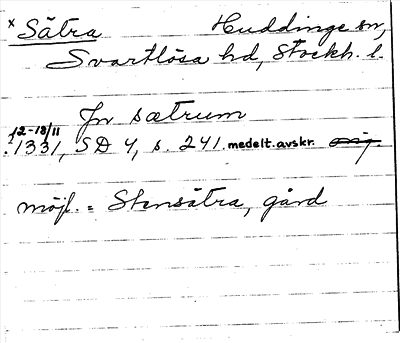 x Sätra Huddinge sn,
Svartlösa hd, Stockh. l.
Jn sætrum
12-18/11
1331, SD 4, s. 241. medelt. avskr. orig.
möjl. = Stensätra, gård